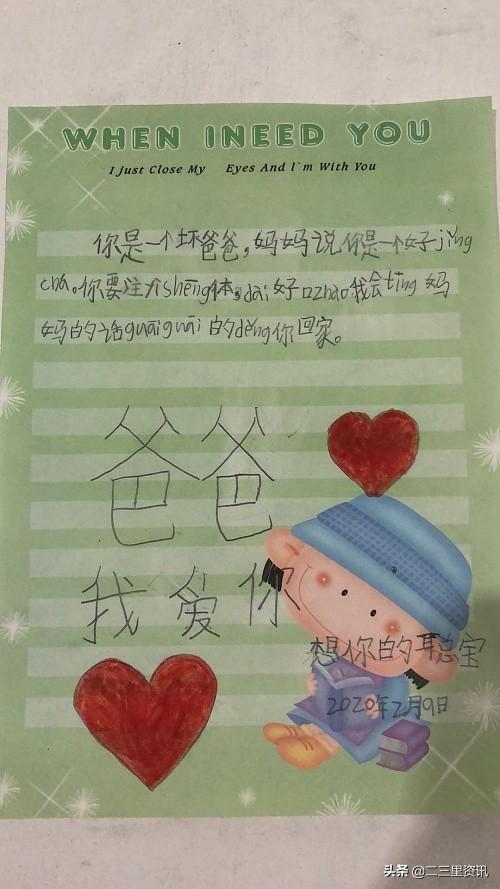 WHEN INEED YOU
I just Close My Eyes And l`m With You
你是一个坏爸爸,妈妈说你是一个好jǐng
chá。你要注介shēng体,dài好口zhào我会tīng妈
妈的话guāiguāi的děng你回家。
爸爸
我爱你
想你的聪宝
2020年2月9日
头条 @二三里资讯